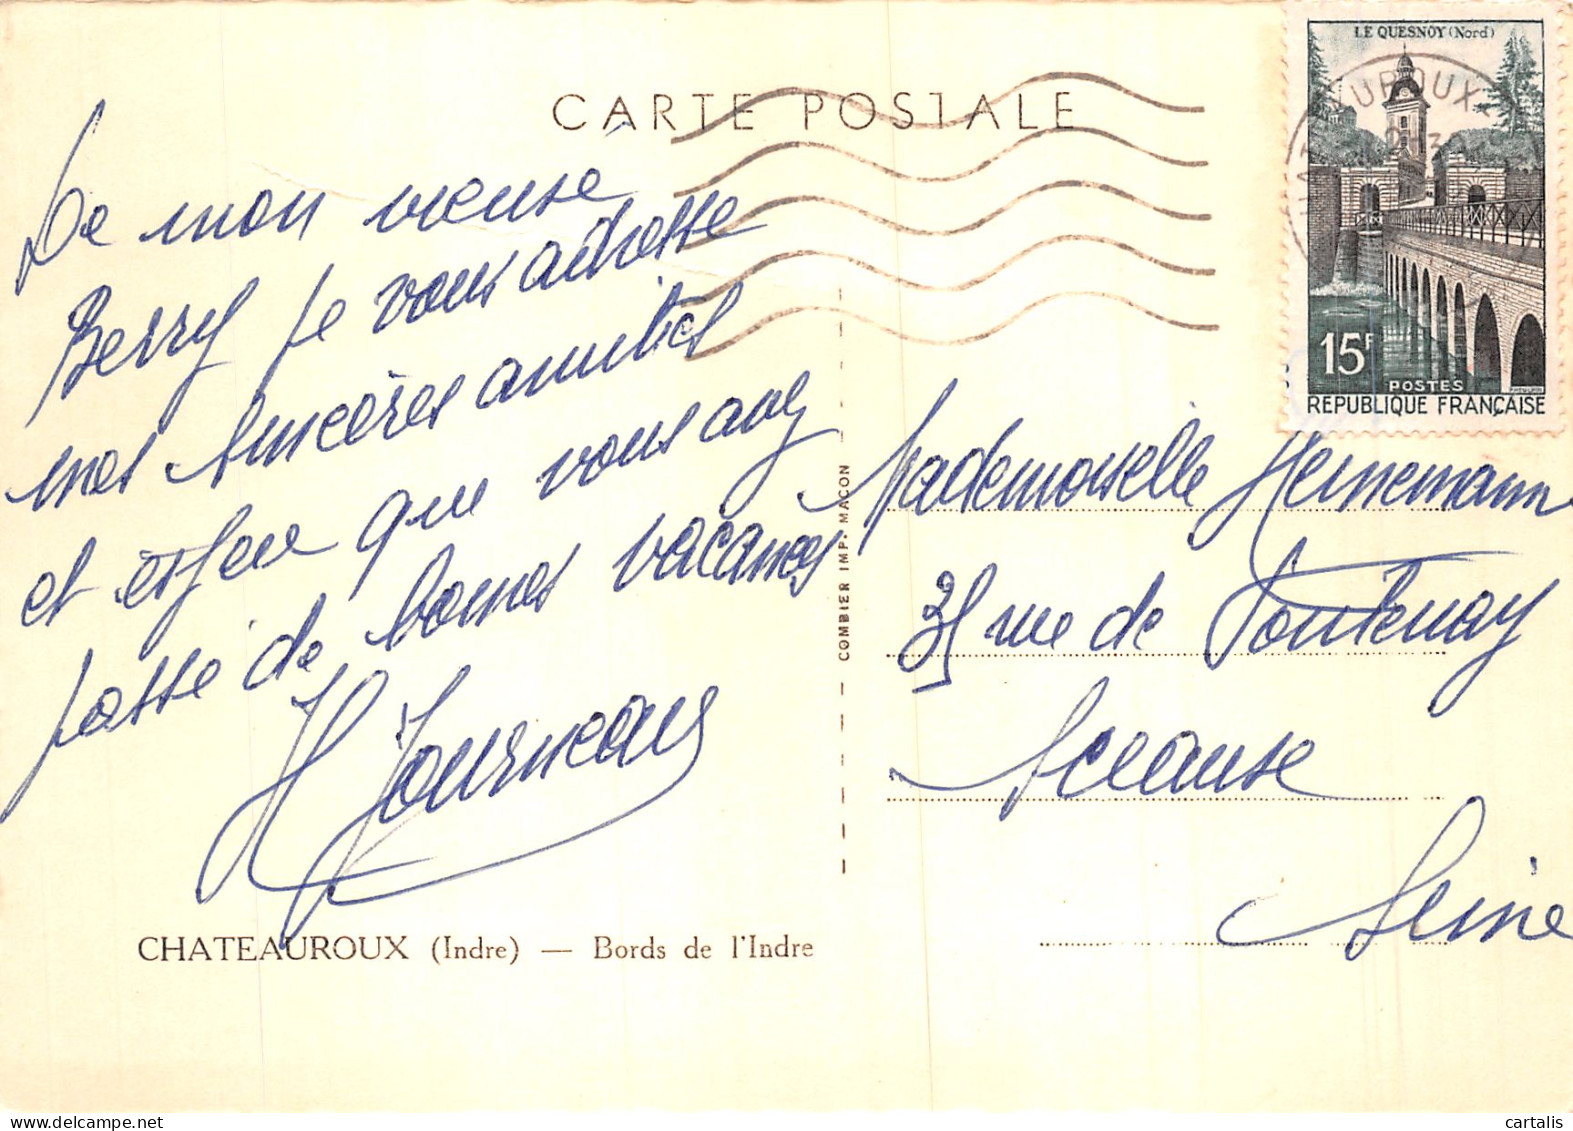 CARTE POSTALE
De mon vieuse
Berry je vous adresse
mes sincères amitiés
et espere que vous avez
passé de bonnes vacances
H Journeaux
CHATEAUROUX (Indre) — Bords de l'Indre
COMBIER IMP. MACON
LE QUESNOY (Nord)
15F
POSTES
REPUBLIQUE FRANÇAISE
Mademoiselle Heinemann
35 rue de Fontenay
Sceause
Seine
cartalis - www.delcampe.net